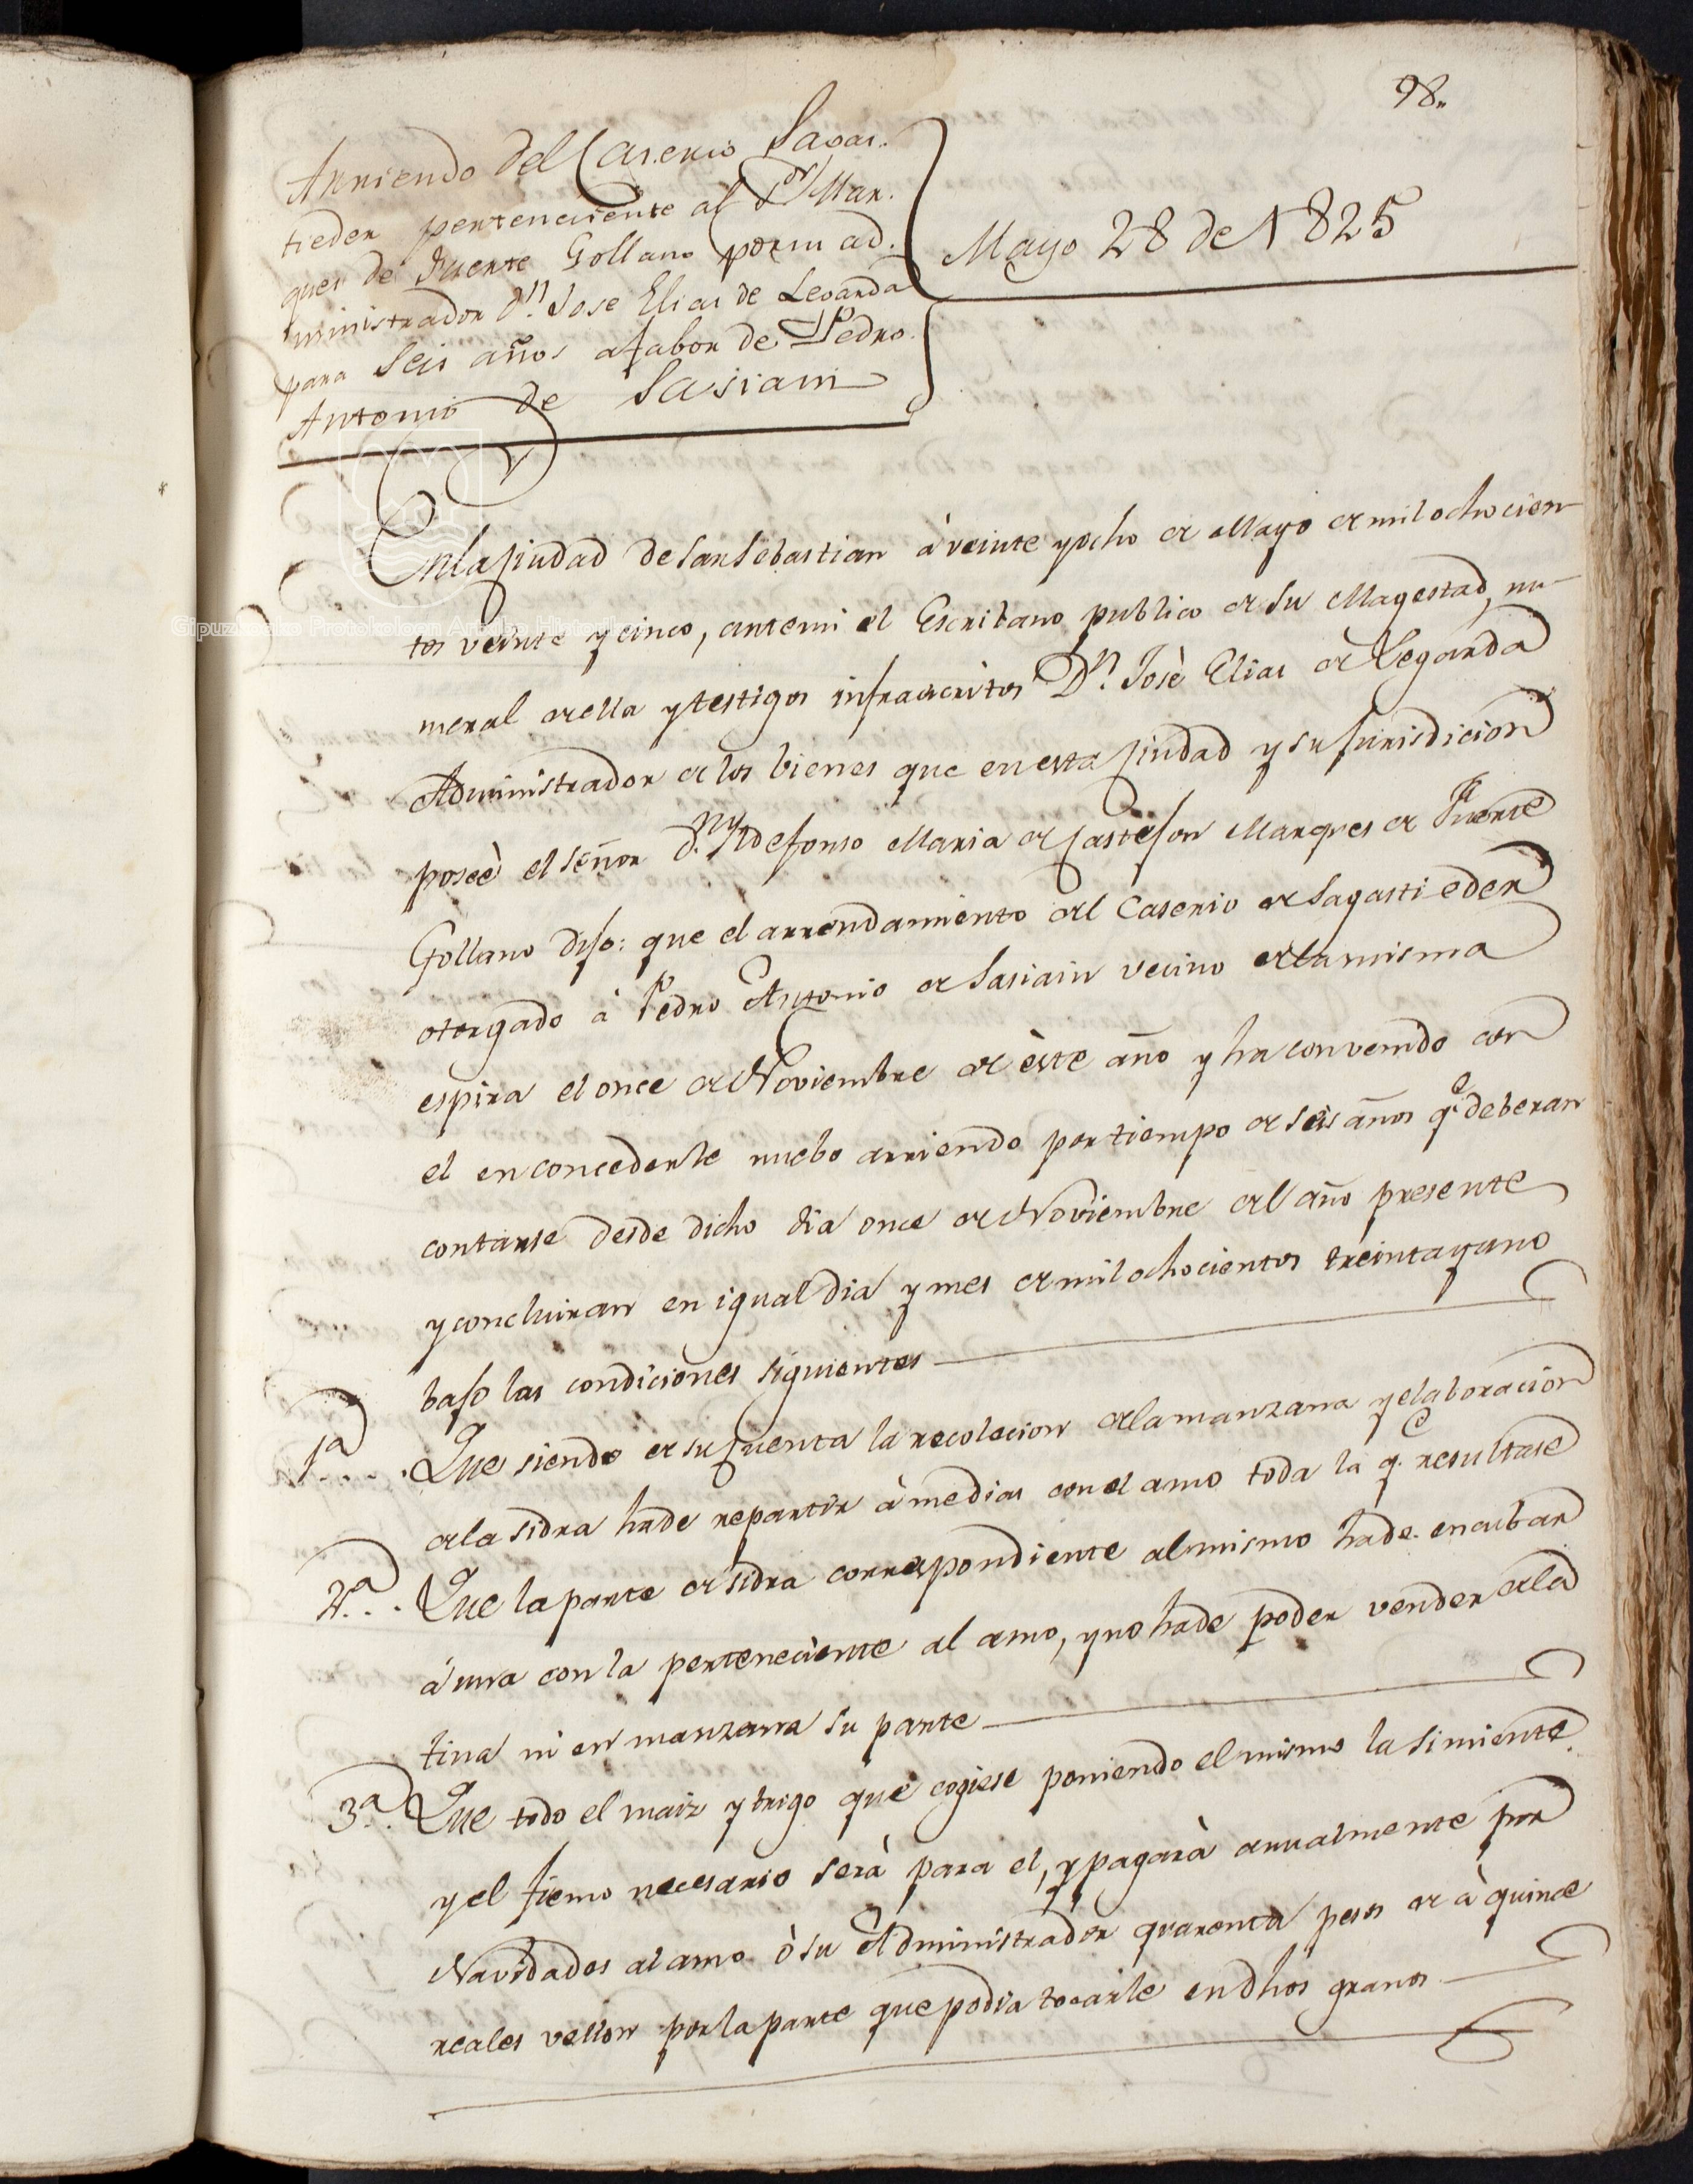 98.
Arriendo del Caserio Sagas.
tieder perteneciente al S.or Mar.
ques de Fuente Gollano por su ad.
ministrador D.n Jose Elias de Legarda
para Seis años a fabor de Pedro
Antonio de Sasiain
Mayo 28 de 1825
En la Ciudad de San Sebastian à veinte y ocho de Mayo de mil ochocien-
tos veinte y cinco, ante mi el Escribano publico de su Magestad, nu-
meral de ella y testigos infraescritos D.n Josè Elias de Legarda
Administrador de los bienes que en esta Ciudad y su Jurisdicion
poseè el señor D.n Yldefonso Maria de Castejon Marques de Fuerte
Gollano dijo: que el arrendamiento del Caserio de Sagasti-eder
otorgado à Pedro Antonio de Sasiain vecino de la misma
espira el once de Noviembre de èste año y ha convenido con
el en concederle nuebo arriendo por tiempo de seis años q.e deberan
contarse desde dicho dia once de Noviembre del año presente
y concluiran en igual dia y mes de mil ochocientos treinta y uno
bajo las condiciones siguientes
1.a Que siendo de su cuenta la recolecion de la manzana y elaboracion
de la sidra ha de repartir à medias con el amo toda la q.e resultase
2.a Que la parte de sidra correspondiente al mismo ha de encubar
à una con la perteneciente al amo, y no ha de poder vender de la
tina ni en manzana su parte
3.a Que todo el maiz y trigo que cogiese poniendo el mismo la simiente
y el fiemo necesario serà para el, y pagarà anualmente por
Navidades al amo ò su Administrador quarenta pesos de à quince
reales vellon por la parte que podia tocarle en dhos granos
Gipuzkoako Protokoloen Artxibo Historikoa